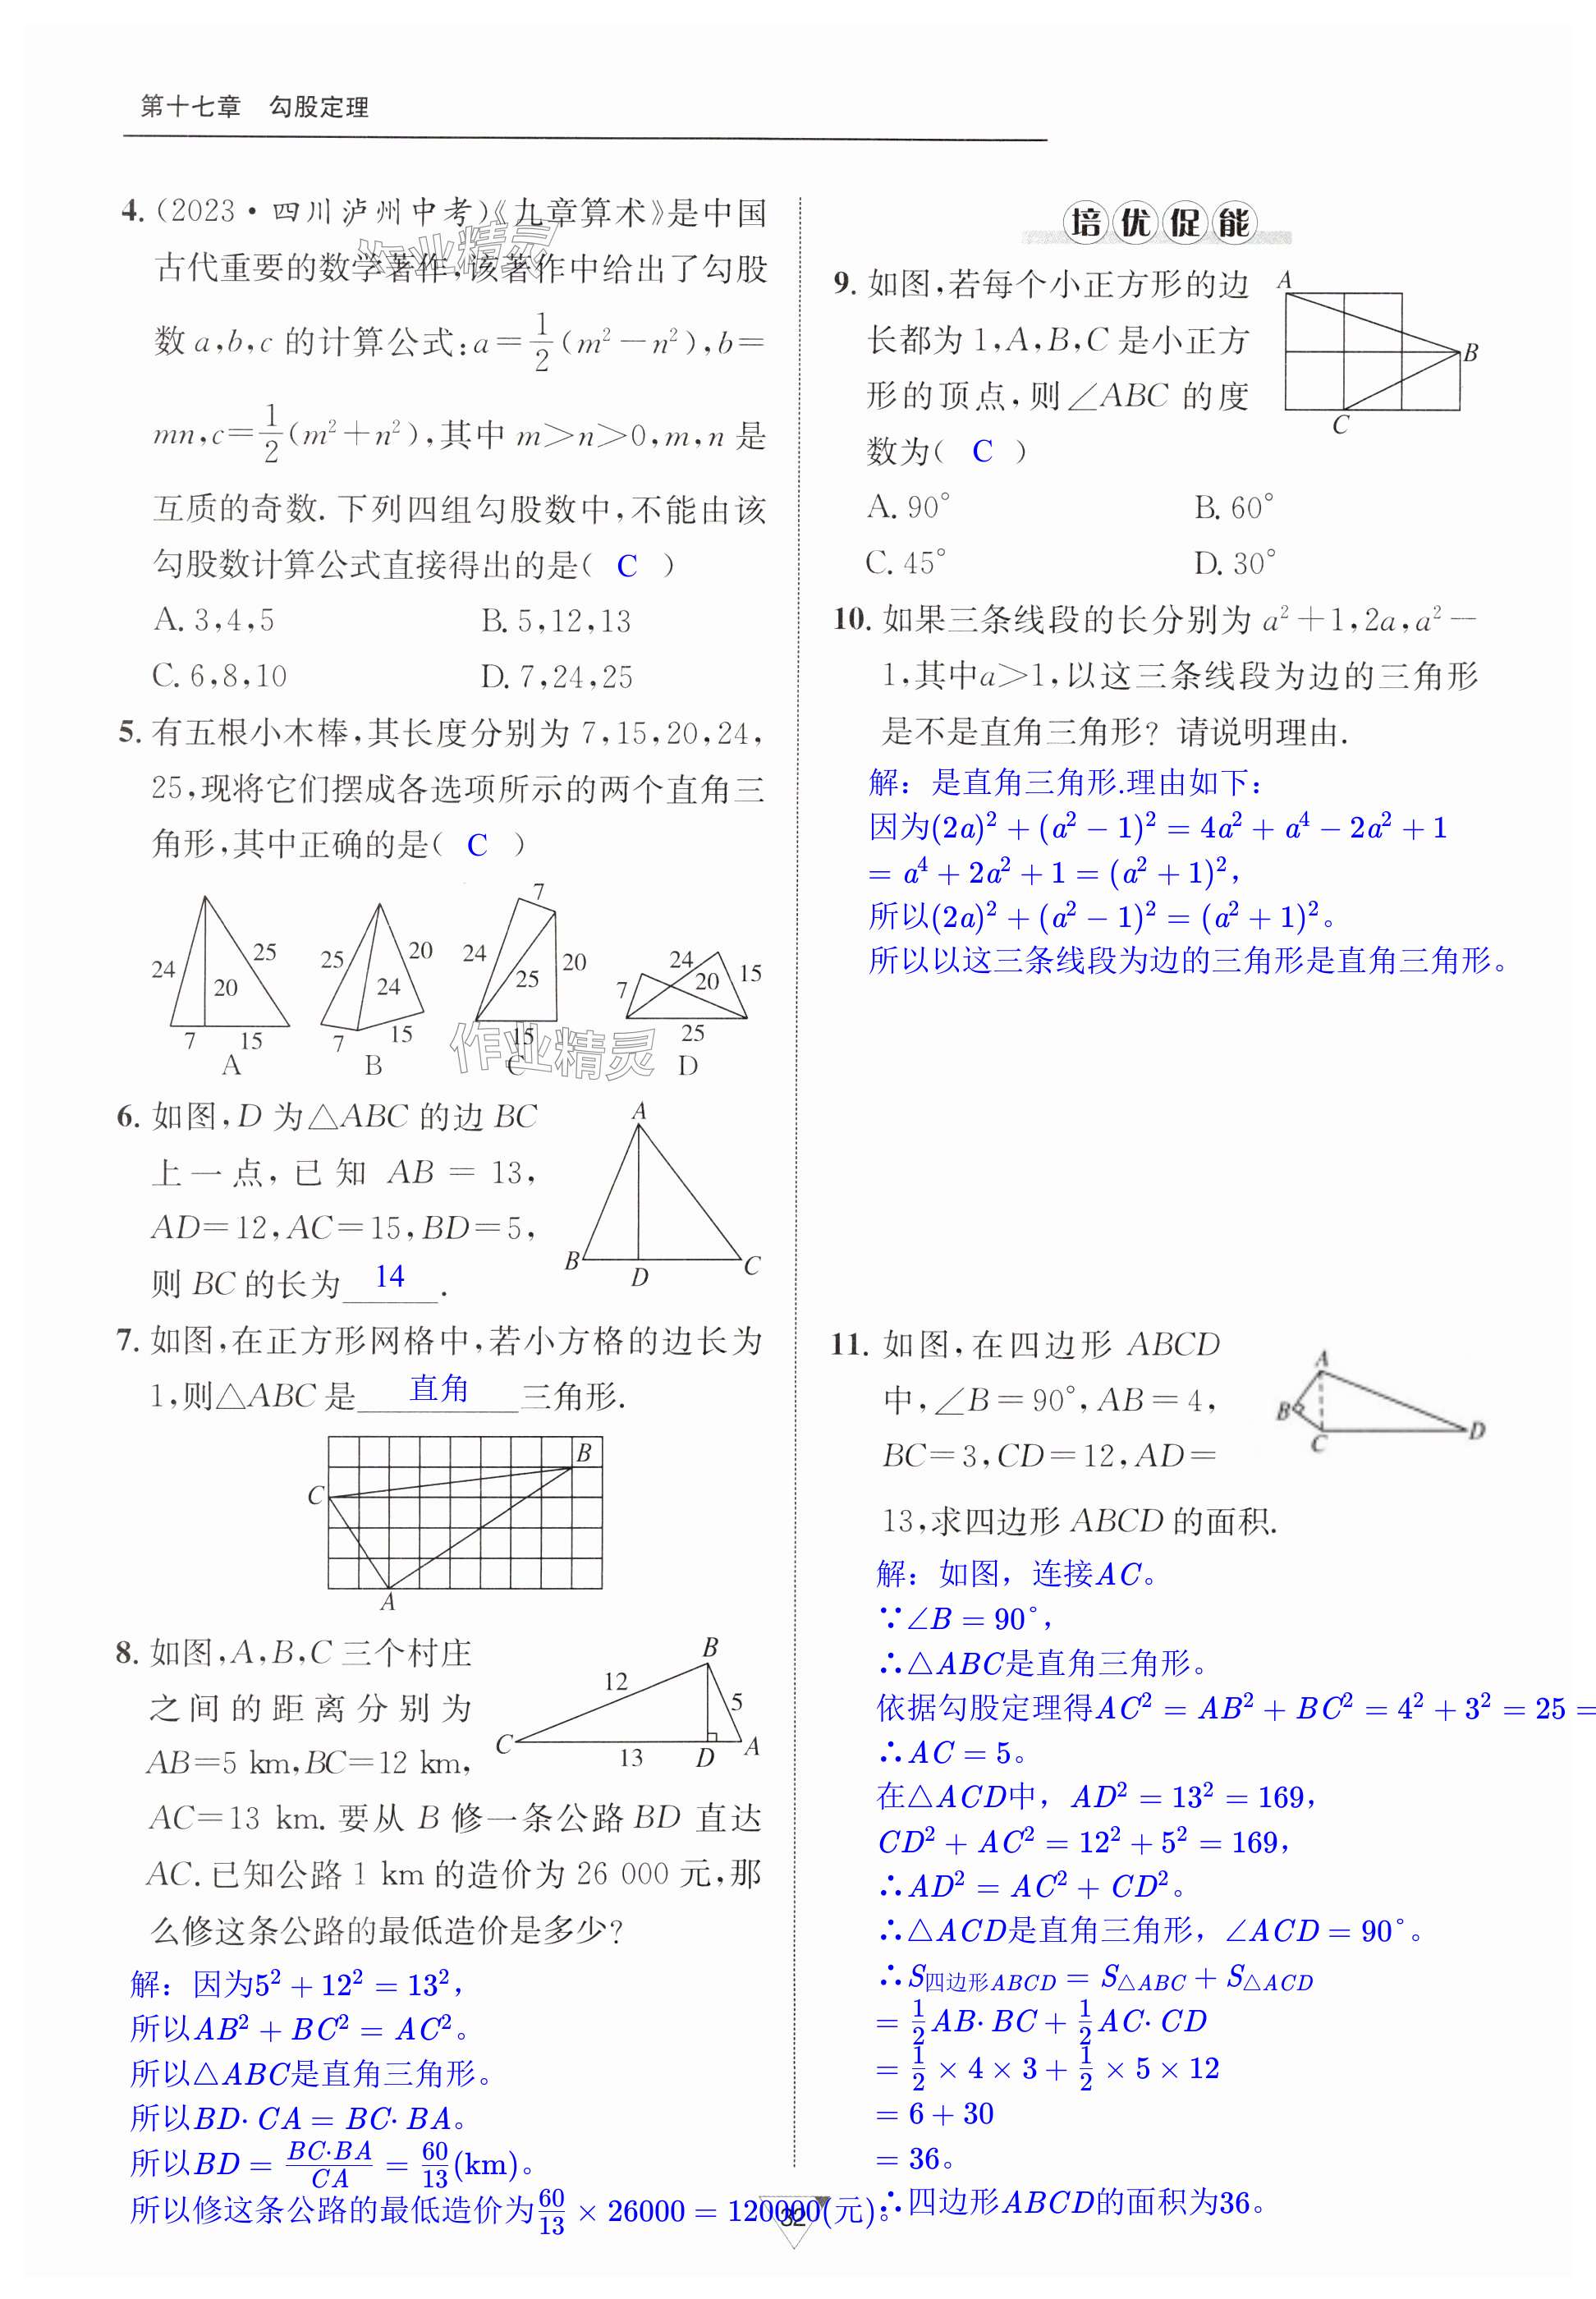 第十七章 勾股定理
4. (2023·四川泸州中考)《九章算术》是中国
古代重要的数学著作,该著作中给出了勾股
数 a,b,c 的计算公式:a=1/2(m²-n²),b=
mn,c=1/2(m²+n²),其中 m>n>0,m,n 是
互质的奇数. 下列四组勾股数中,不能由该
勾股数计算公式直接得出的是( C )
A. 3,4,5 B. 5,12,13
C. 6,8,10 D. 7,24,25
5. 有五根小木棒,其长度分别为 7,15,20,24,
25,现将它们摆成各选项所示的两个直角三
角形,其中正确的是( C )
24 25 20 7 15 A
25 20 24 7 15 B
7 24 25 20 15 C
24 20 15 7 25 D
作业精灵
作业精灵
6. 如图,D 为△ABC 的边 BC
上一点,已知 AB = 13,
AD=12,AC=15,BD=5,
则 BC 的长为 14 .
A
B D C
7. 如图,在正方形网格中,若小方格的边长为
1,则△ABC 是 直角 三角形.
B
C
A
8. 如图,A,B,C 三个村庄
之间的距离分别为
AB=5 km,BC=12 km,
AC=13 km. 要从 B 修一条公路 BD 直达
AC. 已知公路 1 km 的造价为 26 000 元,那
么修这条公路的最低造价是多少?
B
12 5
C 13 D A
解：因为5² + 12² = 13²，
所以AB² + BC² = AC²。
所以△ABC是直角三角形。
所以BD· CA = BC· BA。
所以BD = BC·BA/CA = 60/13(km)。
所以修这条公路的最低造价为60/13 × 26000 = 120000(元)。
培优促能
9. 如图,若每个小正方形的边
长都为 1,A,B,C 是小正方
形的顶点,则∠ABC 的度
数为( C )
A
B
C
A. 90° B. 60°
C. 45° D. 30°
10. 如果三条线段的长分别为 a²+1,2a,a²-
1,其中a>1,以这三条线段为边的三角形
是不是直角三角形? 请说明理由.
解：是直角三角形.理由如下：
因为(2a)² + (a² − 1)² = 4a² + a⁴ − 2a² + 1
= a⁴ + 2a² + 1 = (a² + 1)²，
所以(2a)² + (a² − 1)² = (a² + 1)²。
所以以这三条线段为边的三角形是直角三角形。
11. 如图,在四边形 ABCD
中,∠B=90°,AB=4,
BC=3,CD=12,AD=
13,求四边形 ABCD 的面积.
A
B
C D
解：如图，连接AC。
∵∠B = 90°，
∴△ABC是直角三角形。
依据勾股定理得AC² = AB² + BC² = 4² + 3² = 25 =
∴AC = 5。
在△ACD中，AD² = 13² = 169，
CD² + AC² = 12² + 5² = 169，
∴AD² = AC² + CD²。
∴△ACD是直角三角形，∠ACD = 90°。
∴S四边形ABCD = S△ABC + S△ACD
= 1/2 AB· BC + 1/2 AC· CD
= 1/2 × 4 × 3 + 1/2 × 5 × 12
= 6 + 30
= 36。
∴四边形ABCD的面积为36。
32